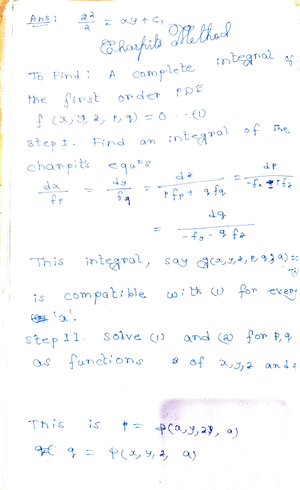 Ans: z²/2 = xy + c,
Charpits Method
To Find : A complete integral of
the first order PDE
f (x, y, z, p, q) = 0 --(1)
Step I. Find an integral of the
charpit's equns
dx/fp = dy/fq = dz/(pfp + qfq) = dp/(-fx - pfz)
= dq/(-fy - qfz)
This integral, say g(x,y,z,p,q,a)=0
is compatible with (1) for every
'a'.
Step II. Solve (1) and (2) for p, q
as functions of x,y,z and a
This is p = φ(x,y,z, a)
q = ψ(x,y,z, a)